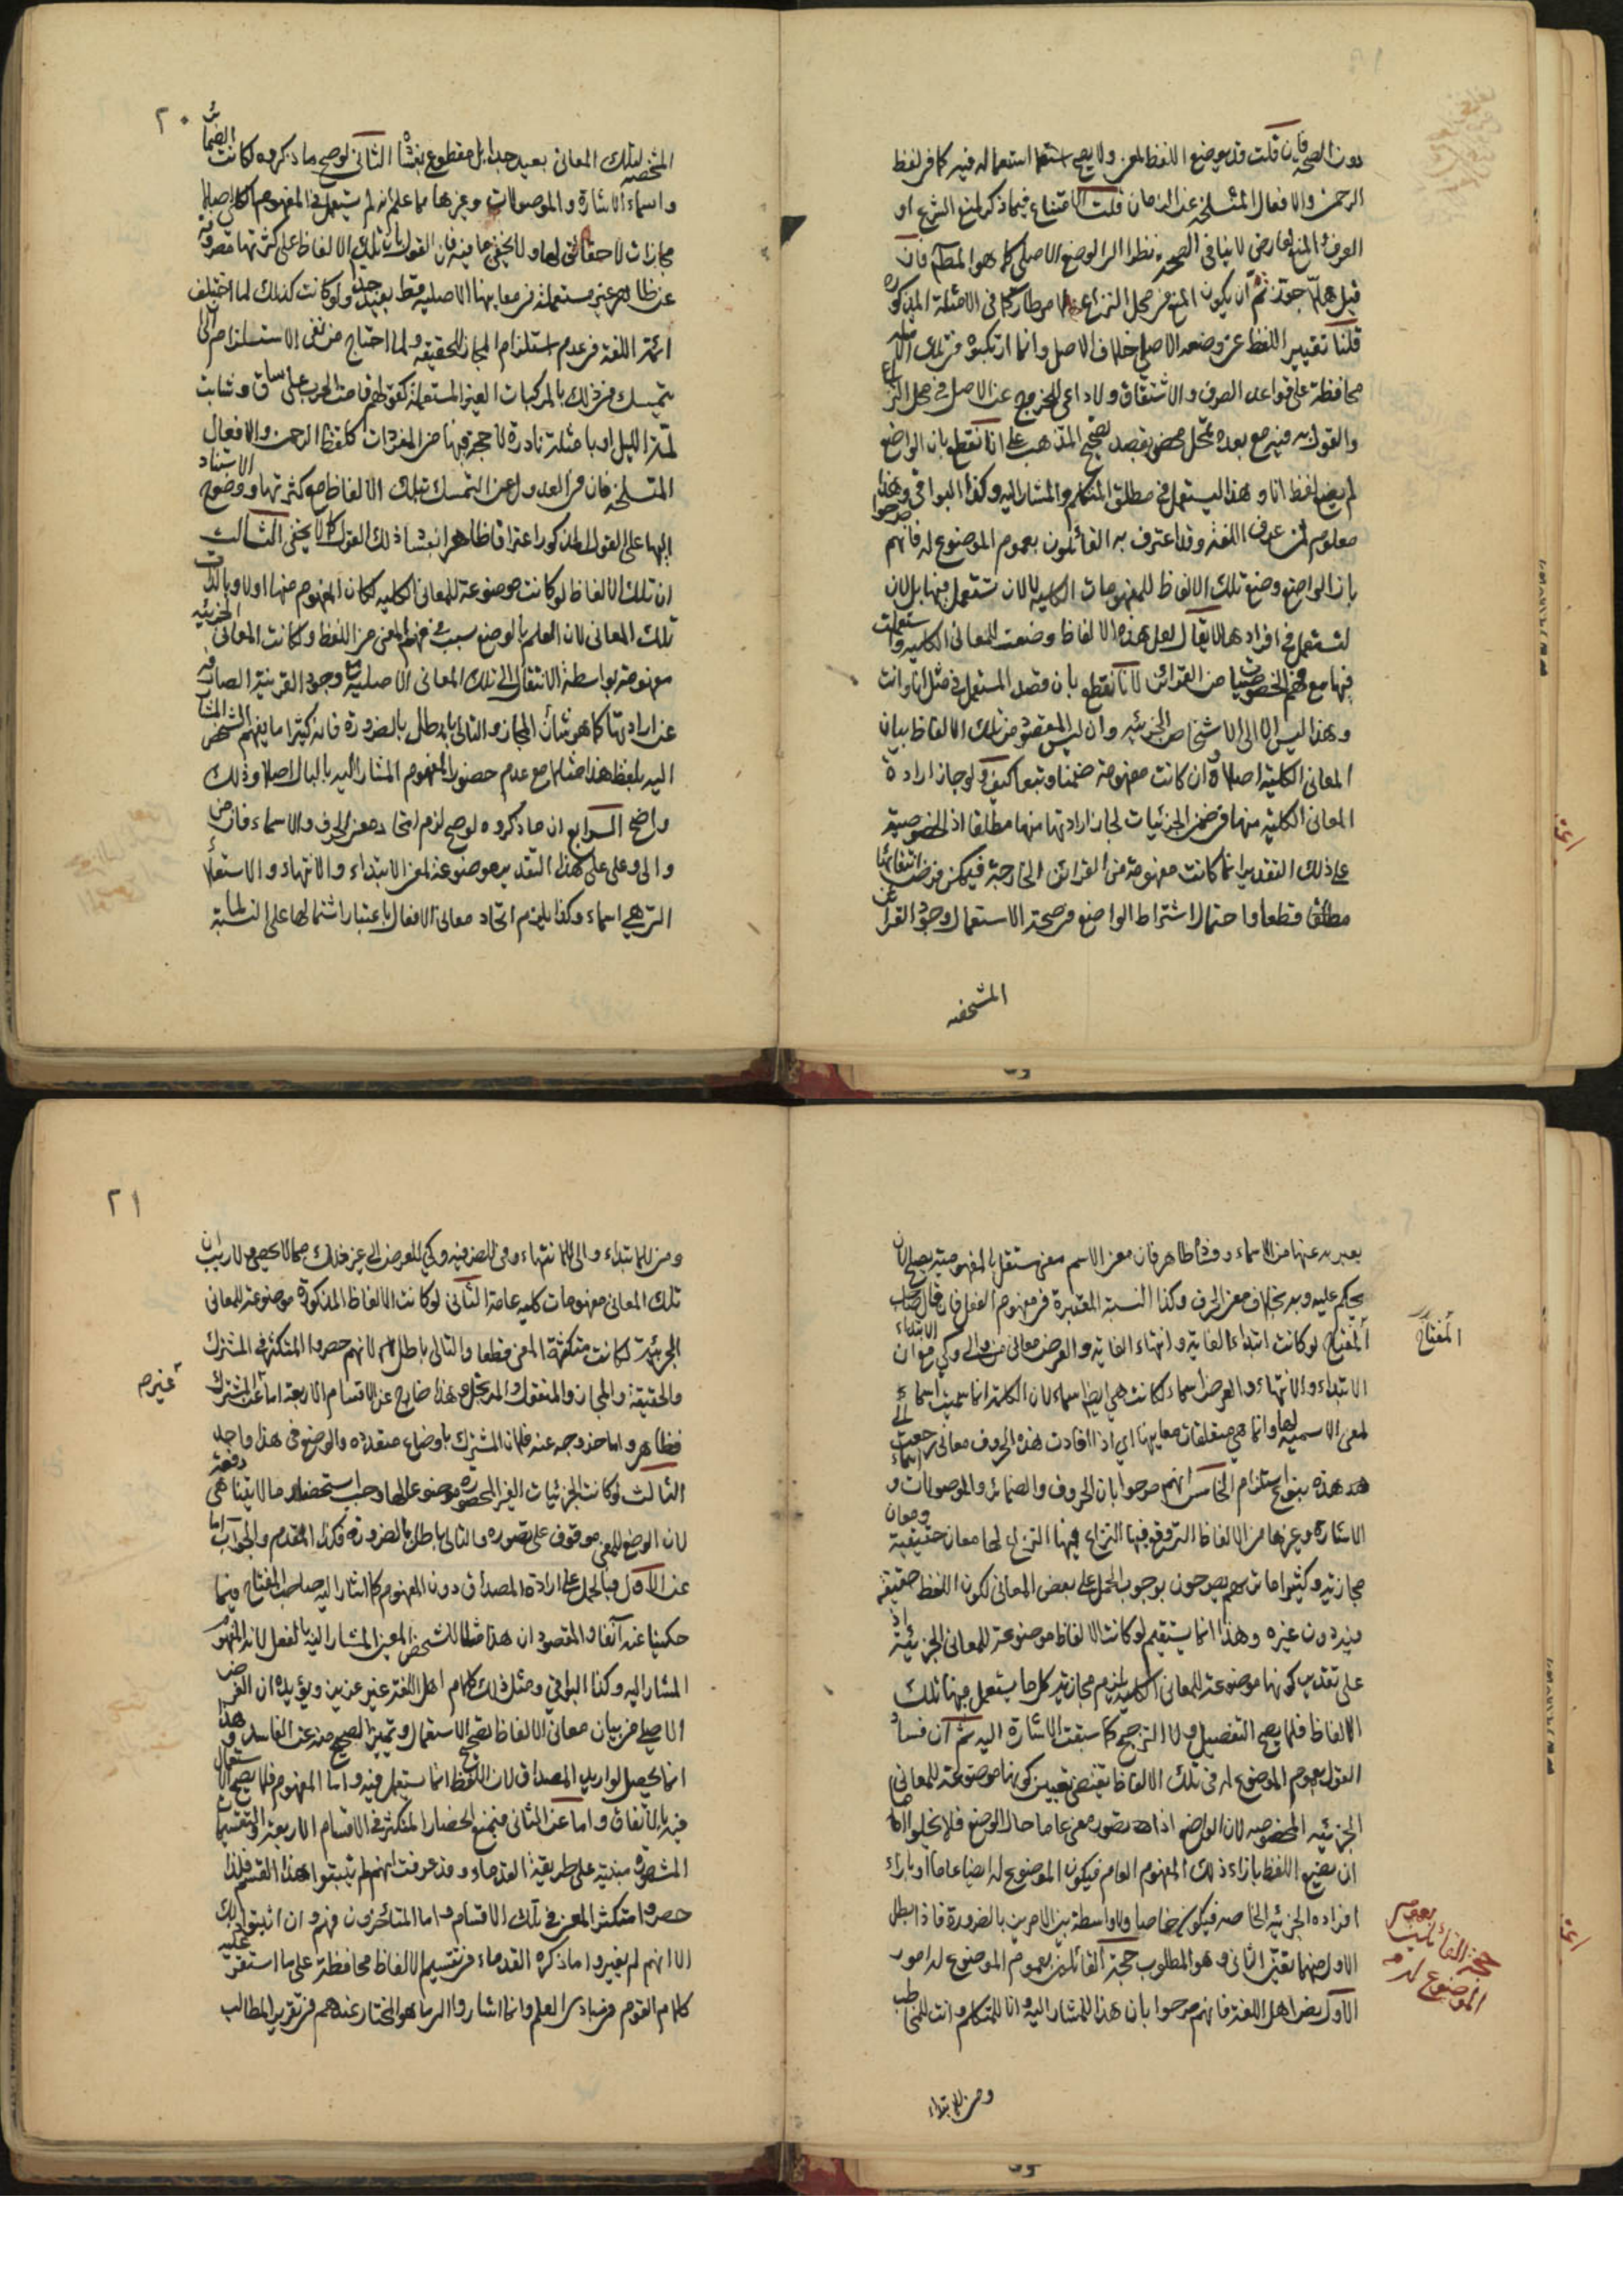 دون الصحة فإن قلت قد يوضع اللفظ لمعنى ولا يصح استعماله فيه كما في لفظ
الرحمن والافعال المنسلخة عن الزمان قلت الامتناع فيما ذكر لمنع الشرع او
العرف والمنع لعارض لا ينافي الصحة نظرا الى الوضع الاصلي كما هو المدعى فان
قيل هلا جوز ثم ان يكون المنع في محل النزاع طاريا كما في الامثلة المذكورة
قلنا تغيير اللفظ عن وضعه الاصلي خلاف الاصل وانما ارتكبوه في تلك الامثلة
محافظة على قواعد الصرف والاشتقاق ولا داعي للخروج عن الاصل في محل النزاع
والقول به فيه مع بعده تمحل محض بقصد تصحيح المذهب على انا نقطع بان الواضع
لم يضع لفظ انا وهذا ليستعمل في مطلق المتكلم والمشار اليه وكذا البواقي وهذا
معلوم من عرف اللغة وقد اعترف به القائلون بعموم الموضوع له فانهم صرحوا
بان الواضع وضع تلك الالفاظ للمفهومات الكلية لا لان تستعمل فيها بل لان
تستعمل في افرادها لا يقال لعل هذه الالفاظ وضعت للمعاني الكلية واستعملت
فيها مع فهم الخصوصيات من القرائن لانا نقطع بان قصد المستعمل في مثل انا وانت
وهذا ليس الا الى الاشخاص الجزئية وان ليس المقصود من تلك الالفاظ بيان
المعاني الكلية اصلا وان كانت مفهومة ضمنا وتبعا كيف ولو جاز ارادة
المعاني الكلية منها في ضمن الجزئيات لجاز ارادتها منها مطلقا اذ الخصوصية
على ذلك التقدير انما كانت مفهومة من القرائن الخارجة فيمكن فرض انتفائها
مطلقا قطعا واحتمال اشتراط الواضع في صحة الاستعمال وجود القرائن
المشخصة
٢٠
المشخصة لتلك المعاني بعيد جدا بل مقطوع بفساده الثاني لو صح ما ذكروه لكانت الضمائر
واسماء الاشارة والموصولات وغيرها مما علم انه لم يستعمل في المفهوم الكلي اصلا
مجازات لا حقائق لها ولا يخفى ما فيه فان القول بان تلك الالفاظ على كثرتها مصروفة
عن ظاهر غير مستعملة في معانيها الاصلية قط بعيد جدا ولو كانت كذلك لما اختلف
ائمة اللغة في عدم استلزام المجاز للحقيقة ولما احتاج من نفى الاستلزام الى
تمسك في ذلك بالمركبات الغير المستعملة كقولهم قامت الحرب على ساق وشابت
لمة الليل او بامثلة نادرة لا حجر فيها من المفردات كلفظ الرحمن والافعال
المنسلخة فان في العدول عن التمسك بتلك الالفاظ مع كثرتها ووضوح الاستناد
اليها على القول المذكور اعترافا ظاهرا بفساد ذلك القول كما لا يخفى الثالث
ان تلك الالفاظ لو كانت موضوعة للمعاني الكلية لكان المفهوم منها اولا وبالذات
تلك المعاني لان العلم بالوضع سبب في فهم المعنى من اللفظ ولكانت المعاني الجزئية
مفهومة بواسطة الانتقال الى تلك المعاني الاصلية مع وجود القرينة الصارفة
عن ارادتها كما هو شأن المجاز والتالي باطل بالضرورة فانه كثيرا ما يفهم الشخص المشار
اليه بلفظ هذا مثلا مع عدم حضور المفهوم المشار اليه بالبال اصلا وذلك
واضح الرابع ان ما ذكروه لو صح لزم اتحاد معنى الحرف والاسماء فان من
والى وعلى على هذا التقدير موضوعة لمعنى الابتداء والانتهاء والاستعلاء
التي هي اسماء وكذا يلزم اتحاد معاني الافعال باعتبار اشتمالها على النسبة لما
يعبر به عنها من الاسماء وفساده ظاهر فان معنى الاسم معنى مستقل بالمفهومية يصح لان
يحكم عليه وبه بخلاف معنى الحرف وكذا النسبة المعتبرة في مفهوم الفعل قال صاحب
المفتاح
المفتاح لو كانت ابتداء الغاية وانتهاء الغاية والغرض معاني من والى وكي مع ان الابتداء
الابتداء والانتهاء والغرض اسماء لكانت هي ايضا اسماء لان الكلمة انما سميت اسما
لمعنى الاسمية لها وانما هي متعلقات معانيها اي اذا افادت هذه الحروف معاني رجعت الى
هذه بنوع استلزام الخامس انهم صرحوا بان الحروف والضمائر والموصولات واسماء
الاشارة وغيرها من الالفاظ التي وقع فيها النزاع لها معان حقيقية ومعان
مجازية وكثيرا ما تراهم يصرحون بوجوب الحمل على بعض المعاني لكون اللفظ حقيقة
فيه دون غيره وهذا انما يستقيم لو كانت الالفاظ موضوعة للمعاني الجزئية اذ
على تقدير كونها موضوعة للمعاني الكلية يلزم مجازية كل ما يستعمل فيها تلك
الالفاظ فلا يصح التفصيل ولا الترجيح كما سبقت الاشارة اليه ثم ان فساد
القول بعموم الموضوع له في تلك الالفاظ يقتضي تعيين كونها موضوعة للمعاني
الجزئية المخصوصة لان الواضع اذا تصور معنى عاما حال الوضع فلا يخلو اما
ان يضع اللفظ بازاء ذلك المفهوم العام فيكون الموضوع له ايضا عاما او بازاء
افراده الجزئية الخاصة فيكون خاصا ولا واسطة بين الامرين بالضرورة فاذا بطل
الاول منهما تعين الثاني وهو المطلوب حجة القائلين بعموم الموضوع له امور
حجة القائلين بعموم
الموضوع له
الاول نص اهل اللغة فانهم صرحوا بان هذا للمشار اليه وانا للمتكلم وانت للمخاطب
ومن للابتداء
٢١
ومن للابتداء والى للانتهاء وفي للظرفية وكي للغرض الى غير ذلك مما لا يحصى ولا ريب ان
تلك المعاني مفهومات كلية عامة الثاني لو كانت الالفاظ المذكورة موضوعة للمعاني
الجزئية لكانت متكثرة المعنى قطعا والتالي باطل لانهم حصروا المتكثر في المشترك
والحقيقة والمجاز والمنقول والمرتجل وهذا خارج عن الاقسام الاربعة اما عن غير المشترك
غيره
فظاهر واما خروجه عنه فلان المشترك باوضاع متعددة والوضع في هذا واحد
الثالث لو كانت الجزئيات الغير المحصورة موضوعا لها وجب استحضار ما لا يتناهى دفعة
لان الوضع للمعنى موقوف على تصوره والتالي باطل بالضرورة فكذا المقدم والجواب اما
عن الاول فبالحمل على ارادة المصداق دون المفهوم كما اشار اليه صاحب المفتاح فيما
حكينا عنه آنفا والمقصود ان هذا مثلا للشخص المعين المشار اليه بالفعل لا المفهوم
المشار اليه وكذا البواقي ومثل ذلك في كلام اهل اللغة غير عزيز ويؤيده ان الغرض
الاصلي من بيان معاني الالفاظ تصحيح الاستعمال وتمييز الصحيح منه عن الفاسد وهذا
انما يحصل لو اريد المصداق لان اللفظ انما يستعمل فيه واما المفهوم فلا يصح الاستعمال
فيه بالاتفاق واما عن الثاني فبمنع انحصار المتكثر في الاقسام الاربعة والتقسيمات
المشهورة مبنية على طريقة القدماء وقد عرفت انهم لم يثبتوا هذا القسم فلذا
حصروا متكثر المعنى في تلك الاقسام واما المتأخرون فهم وان اثبتوا ذلك
الا انهم لم يغيروا ما ذكره القدماء في تقسيم الالفاظ محافظة على ما استقر عليه
كلام القوم في مبادي العلم وانما اشاروا الى ما هو المختار عندهم في تقرير المطالب